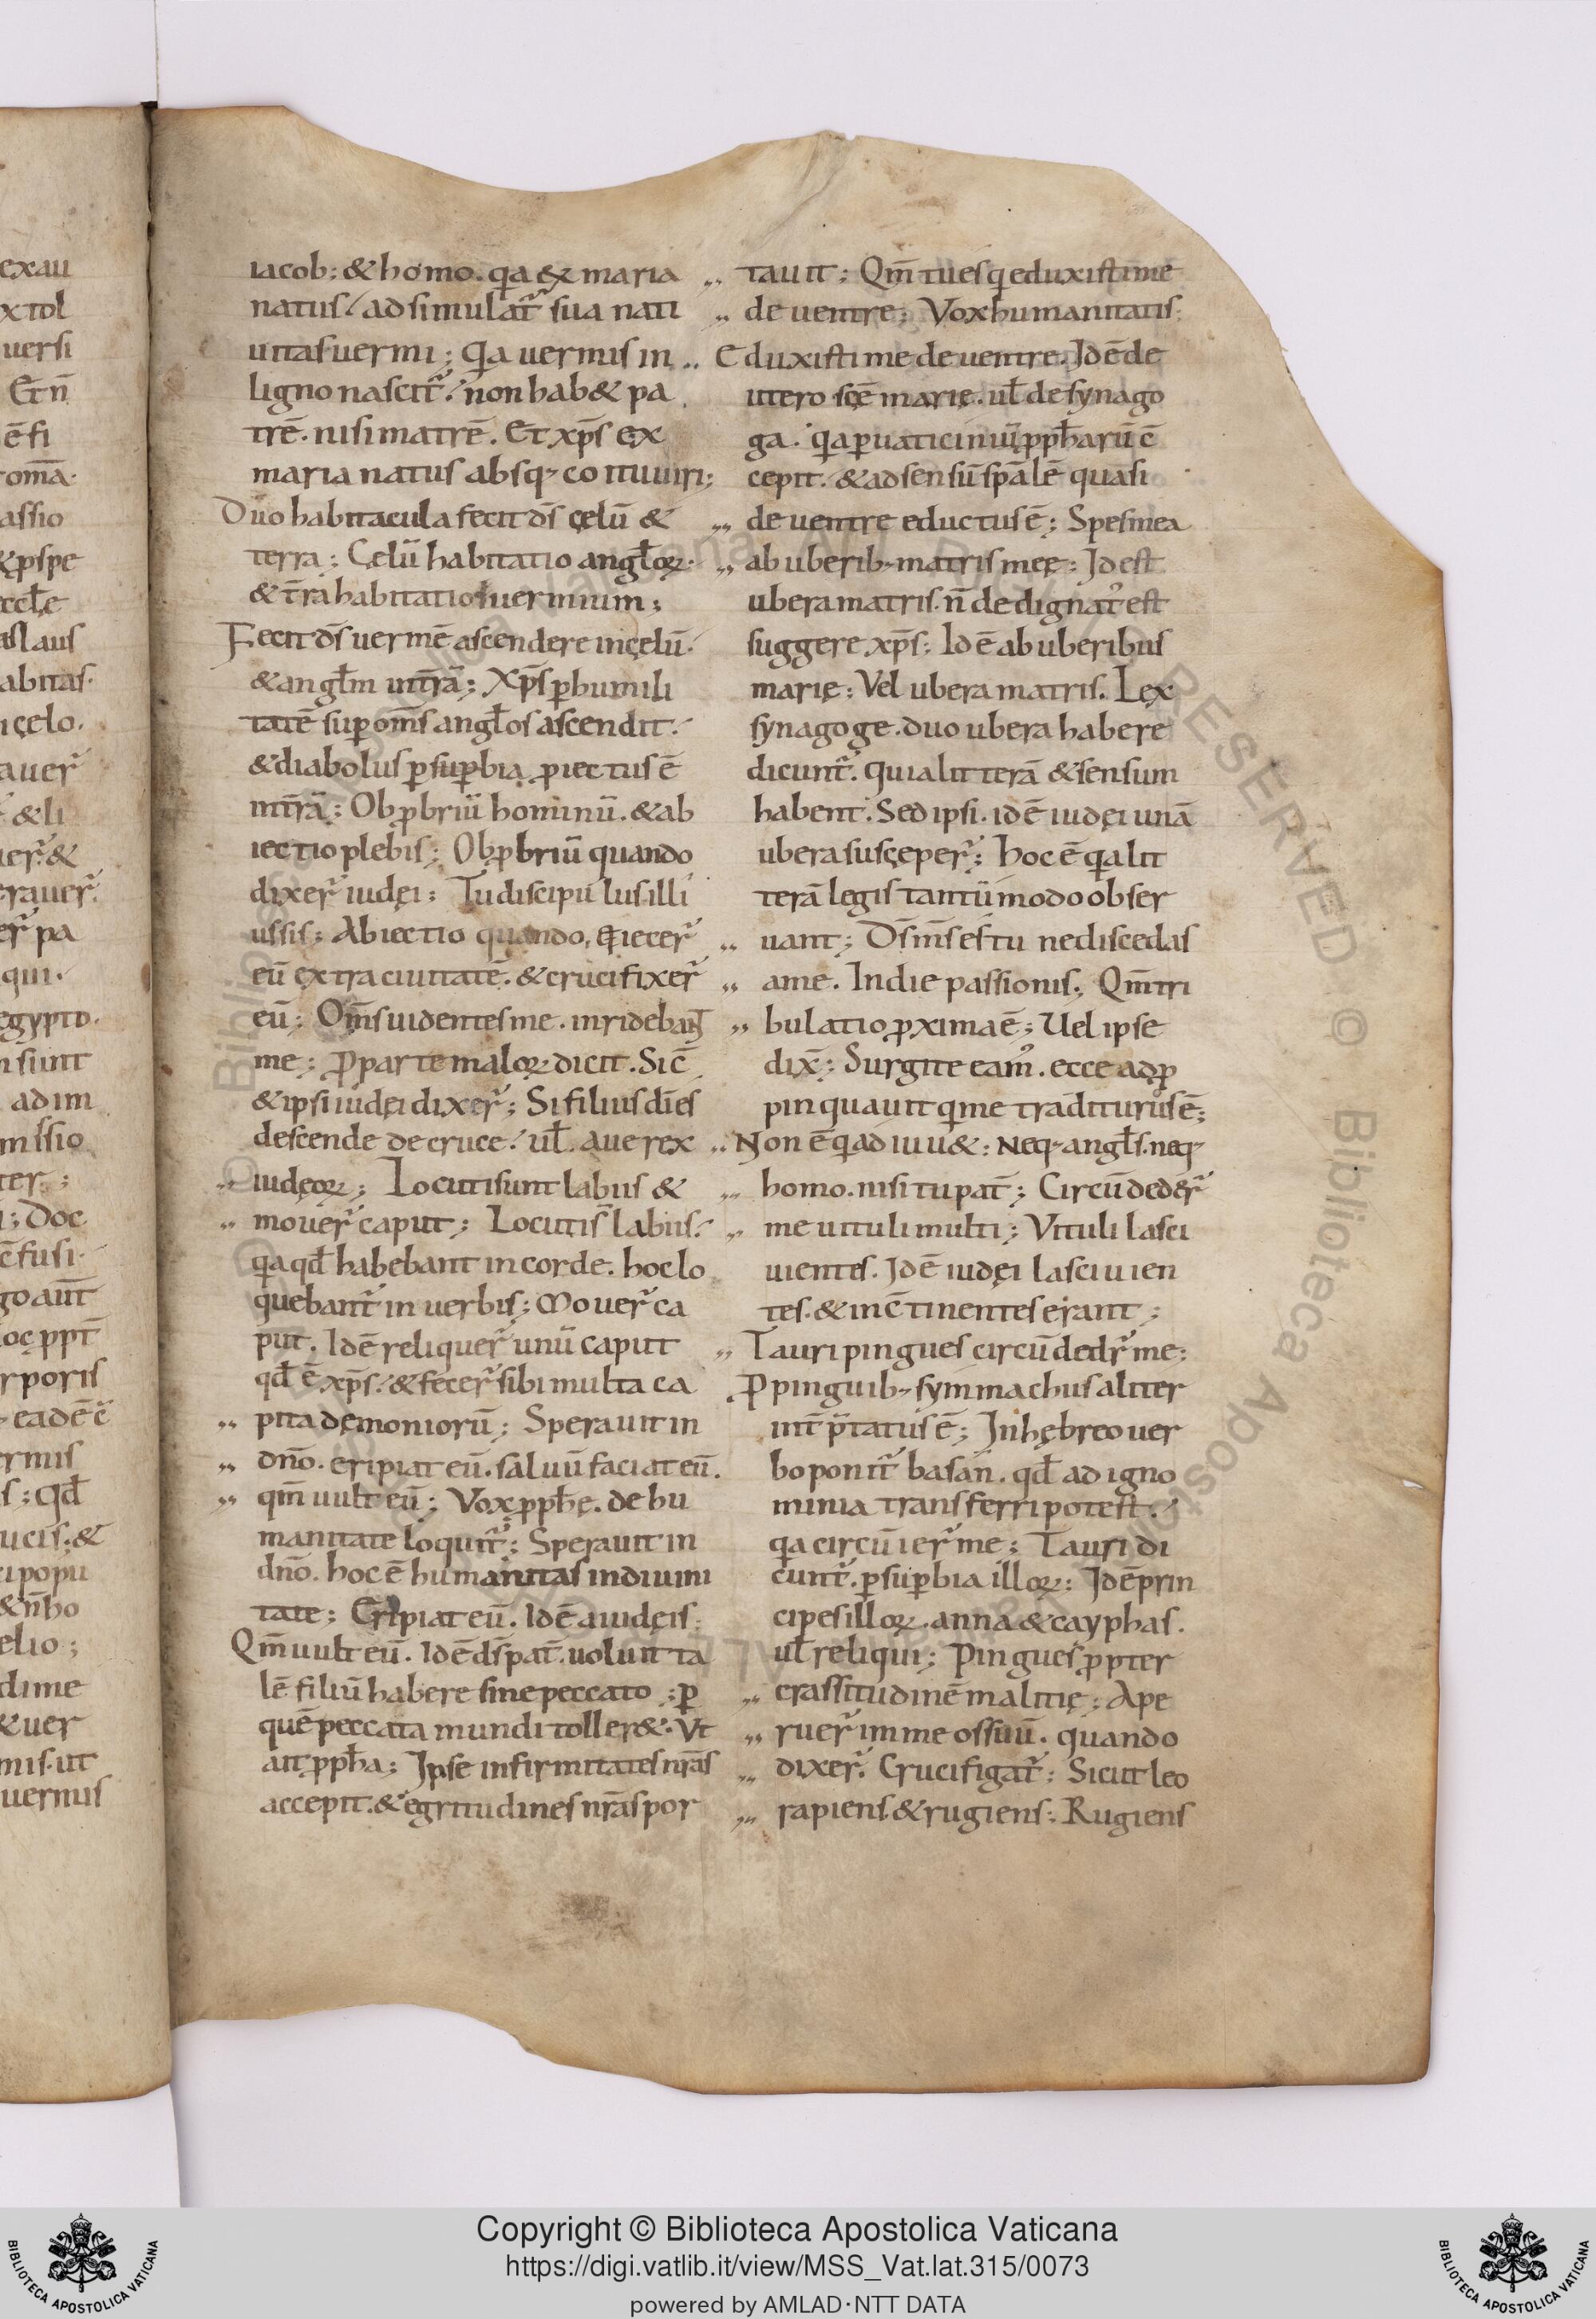 exau
xtol
uersi
Et n̄
ē fi
om̄a.
assio
& p̱spe
eccl̄ę
laus
abitas.
cęlo.
auer̄
& li
uer̄. &
erauer̄.
er̄ pa
qui.
egypto.
sunt
ad im
missio
ter;
; Doc
ē fusi.
go aūt
oc ppt̄
rporis
eadē ē
ermis
s; Qd̄
ucis; &
popu
& n̄ ho
elio;
dime
& uer
mis. ut
uermis
iacob; & homo. q̣a ex maria
natus / adsimulat̄ sua nati
uitas uermi; Q̣a uermis in
ligno nascit̄ / non hab& pa
trē. nisi matrē. Et xp̄s ex
maria natus absq; coitu uiri;
Duo habitacula fecit ds̄ cęlū &
terra; Cęlū habitatio angl̄oꝝ.
& t̄ra habitatio uermium;
Fecit ds̄ uermē ascendere in cęlū.
& angl̄m in t̄rā; Xp̄s ꝑ humili
tatē suꝑ om̄s angl̄os ascendit /
& diabolus ꝑ suꝑbia ꝓiectus ē
in t̄rā; Obꝓbriū hominū. & ab
iectio plebis; Obꝓbriū quando
dixer̄ iudęi; Tu discipulus illi
ussis; Abiectio quando eiecer̄
eū extra ciuitatē. & crucifixer̄
eū; Om̄s uidentes me. inridebant
me; Ꝓ parte maloꝝ dicit. Sic̄
& ipsi iudęi dixer̄; Si filius dī es
descende de cruce / ul̄. aue rex
,, iudęoꝝ; Locuti sunt labiis &
,, mouer̄ caput; Locuti s̄ labiis /
q̣a qd̄ habebant in corde. hoc lo
quebant̄ in uerbis; Mouer̄ ca
put. Id ē reliquer̄ unū caput
qd̄ ē xp̄s / & fecer̄ sibi multa ca
,, pita dęmoniorū; Sperauit in
,, dn̄o. eripiat eū. saluū faciat eū.
,, qm̄ uult eū; Vox ꝓph̄ę. de hu
manitate loquit̄; Sperauit in
dn̄o. hoc ē humanitas in diuini
tate; Eripiat eū. Id ē a iudęis;
Qm̄ uult eū. Id ē ds̄ pat̄. uoluit ta
lē filiū habere sine peccato; ꝑ
quē peccata mundi toller&. Vt
ait ꝓph̄a; Ipse infirmitates nr̄as
accepit. & egritudines nr̄as por
,, tauit; Qm̄ tu es q̣ eduxisti me
,, de uentre; Vox humanitatis;
,, Eduxisti me de uentre. Id ē de
utero scē marię. ul̄ de synago
ga. q̣a ꝑ uaticiniū ꝓph̄arū c̄
cepit. & ad sensū sp̄alē quasi
,, de uentre eductus ē; Spes mea
,, ab uberib; matris meę; Id est
ubera matris. n̄ dedignat᾽ est
suggere xp̄s; Id ē ab uberibus
marię; Vel ubera matris. Lex
synagogę. duo ubera habere
dicunt̄. quia litterā & sensum
habent. Sed ipsi. id ē iudęi unā
ubera suscęper̄; Hoc ē q̣a lit
terā legis tantū modo obser
,, uant; Ds̄ ms̄ es tu ne discedas
,, a me. In die passionis; Qm̄ tri
,, bulatio ꝓxima ē; Uel ipse
dix̄; Surgite eam᾽. ecce adꝓ
pinquauit q̣ me traditurus ē;
,, Non ē q̣ adiuu&; Neq; angl̄s. neq;
,, homo. nisi tu pat̄; Circūdeder̄
,, me uituli multi; Vituli lasci
uientes. Id ē iudęi lasciuien
tes. & inc̄tinentes erant;
,, Tauri pingues circūdedr̄ me;
Ꝓ pinguib; symmachus aliter
int̄p̄tatus ē; In hębreo uer
bo ponit̄ basan. qd̄ ad igno
minia transferri potest /
q̣a circūier̄ me; Tauri di
cunt̄. ꝑ suꝑbia illoꝝ; Id ē prin
cipes illoꝝ. anna & cayphas.
ul̄ reliqui; Pingues ꝓpter
,, crassitudinē malitię; Ape
,, ruer̄ in me os suū. quando
,, dixer̄. Crucifigat̄; Sicut leo
,, rapiens & rugiens; Rugiens
Copyright © Biblioteca Apostolica Vaticana
https://digi.vatlib.it/view/MSS_Vat.lat.315/0073
powered by AMLAD·NTT DATA
BIBLIOTECA APOSTOLICA VATICANA
BIBLIOTECA APOSTOLICA VATICANA